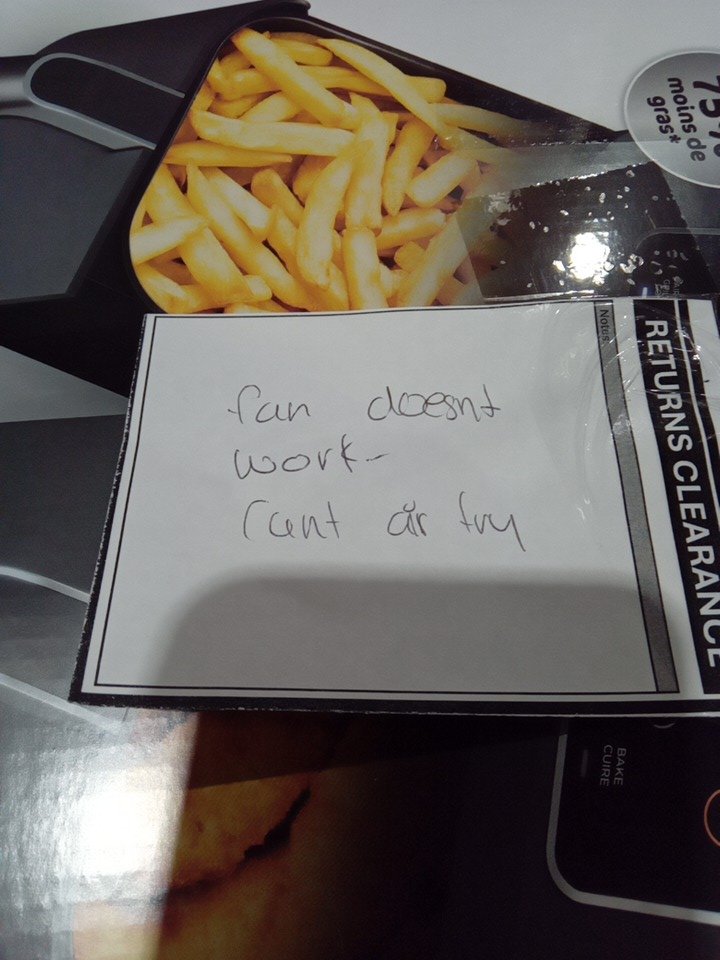 75%
moins de
gras*
Notes
RETURNS CLEARANCE
fan doesnt
work-
Cant air fry
BAKE
CUIRE